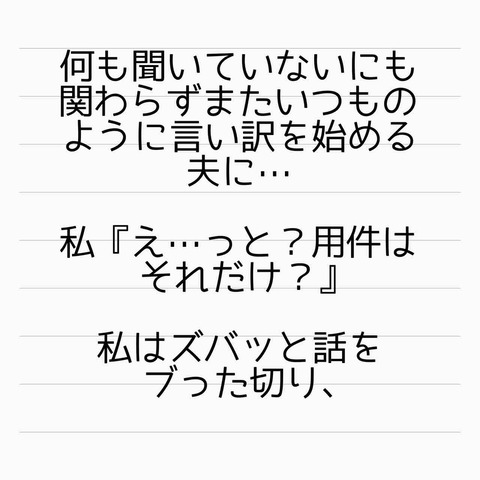 何も聞いていないにも
関わらずまたいつもの
ように言い訳を始める
夫に…
私『え…っと？用件は
それだけ？』
私はズバッと話を
ブった切り、